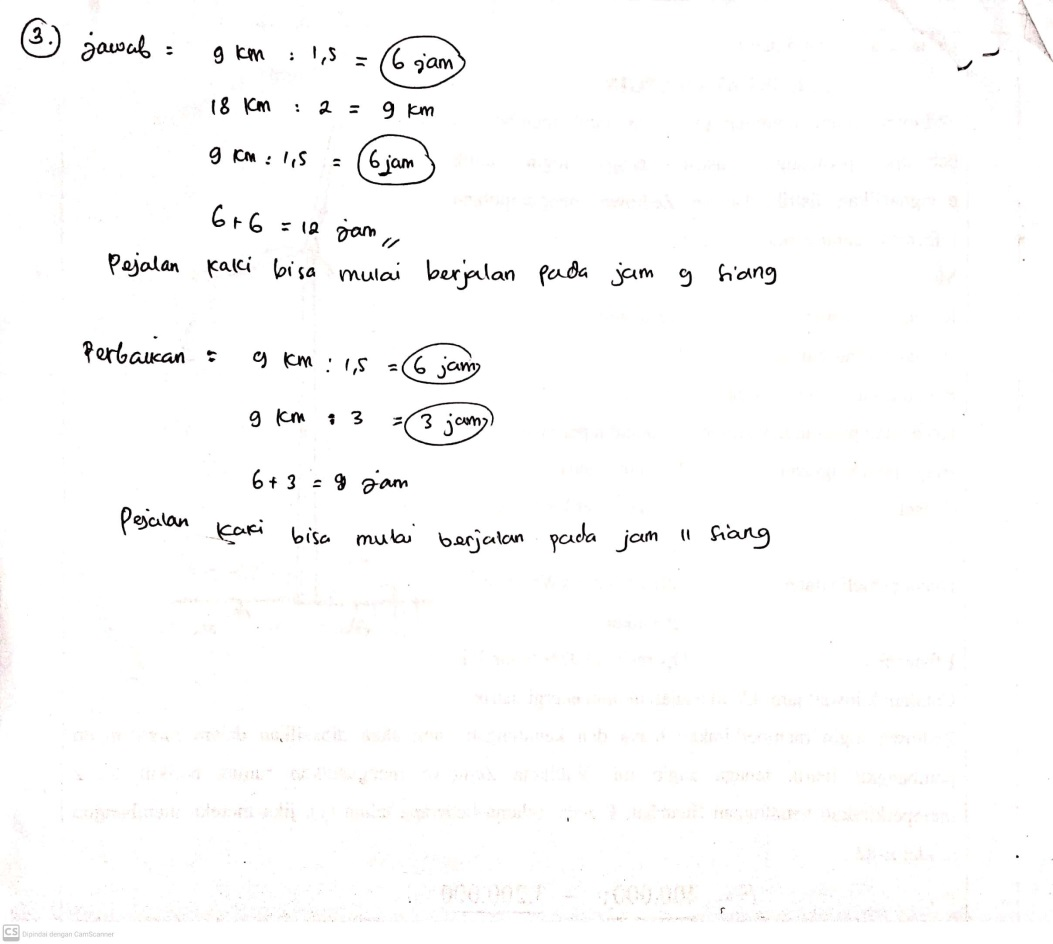 3.) jawab = 9 km : 1,5 = 6 jam
18 km : 2 = 9 km
9 km : 1,5 = 6 jam
6 + 6 = 12 jam //
Pejalan kaki bisa mulai berjalan pada jam 9 siang
Perbaikan = 9 km : 1,5 = 6 jam
9 km : 3 = 3 jam
6 + 3 = 9 jam
Pejalan kaki bisa mulai berjalan pada jam 11 siang
CS Dipindai dengan CamScanner